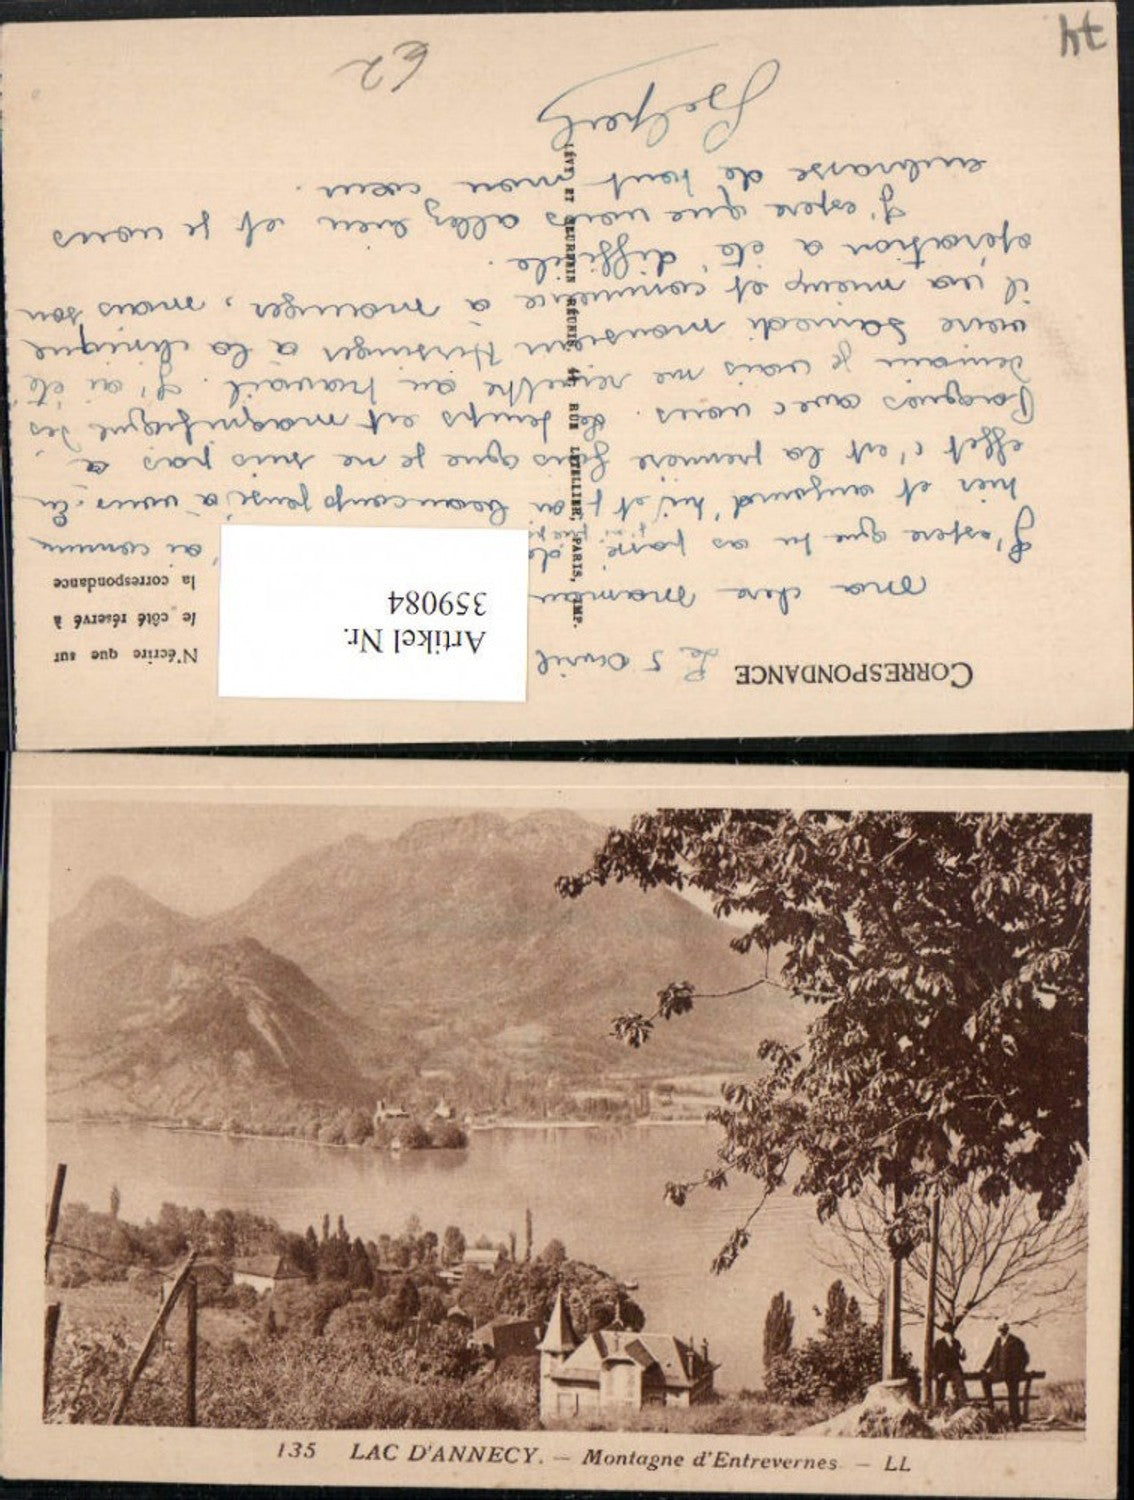 CORRESPONDANCE
Le 5 Avril
N'écrire que sur
le côté réservé à
la correspondance
Artikel Nr.
359084
Ma chère maman
J'espère que tu as passé de
hier et aujourd'hui et on beaucoup pensé à vous. En
effet c'est la première fois que je ne suis pas à
Parginos avec vous. Le temps est magnifique. Des
demain je vais me remettre au travail. J'ai été
voir Samedi monsieur Hirsinger à la clinique
il va mieux et commence à manger, mais son
opération a été difficile.
J'espère que vous allez bien et je vous
embrasse de tout mon cœur.
62
74
LÉVY ET NEURDEIN RÉUNIS, 44, RUE LETELLIER, PARIS, IMP.
135 LAC D'ANNECY. — Montagne d'Entrevernes — LL